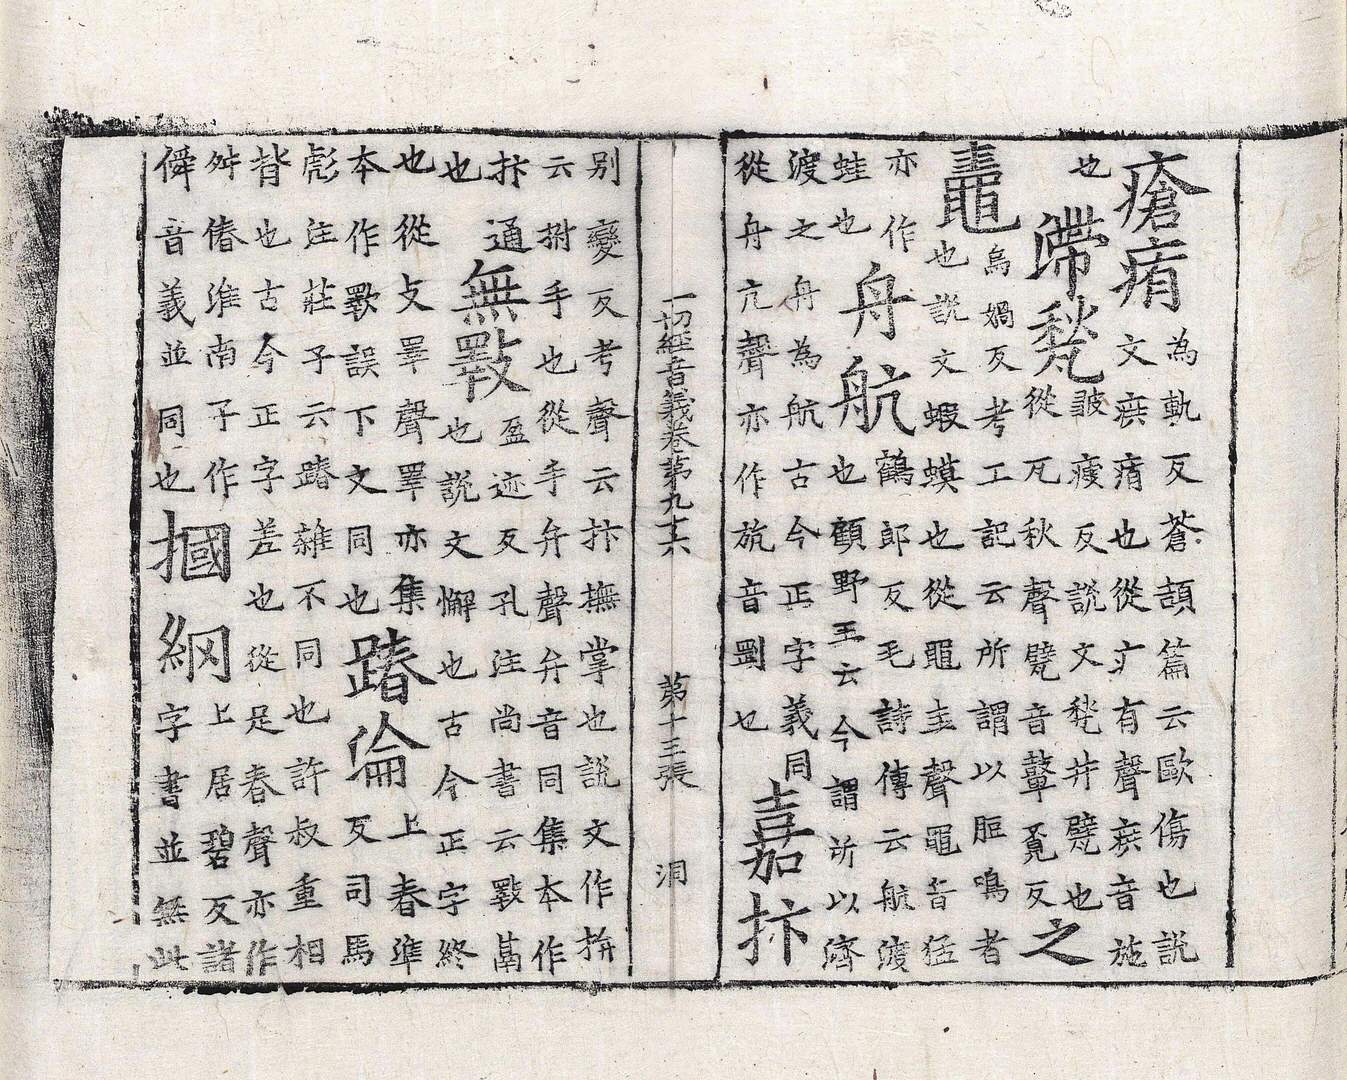 瘡痏為軌反蒼頡篇云歐傷也說
文疾痏也從疒有聲疾音施
也渧甃皷㾭反說文甃井甓也
從瓦秋聲甓音鼙覓反之
鼃烏媧反考工記云所謂以脰鳴者
也說文蝦蟆也從黽圭聲黽音猛
亦作
蛙也舟航鶴郎反毛詩傳云航渡
也顧野王云今謂所以濟
渡之舟為航古今正字義同
從舟亢聲亦作斻音剛也嘉抃
一切經音義卷第九十六 第十三張 洞
別變反考聲云抃撫掌也說文作拚
云拊手也從手弁聲弁音同集本作
抃通
也無斁盈迹反孔注尚書云斁猒
也說文懈也古今正字終
也從攴睪聲睪亦集
本作歝誤下文同也踳倫上春準
反司馬
彪注莊子云踳雜不同也許叔重相
背也古今正字差也從足春聲亦作
舛偆淮南子作
僢音義並同也摑網上居碧反諸
字書並無此